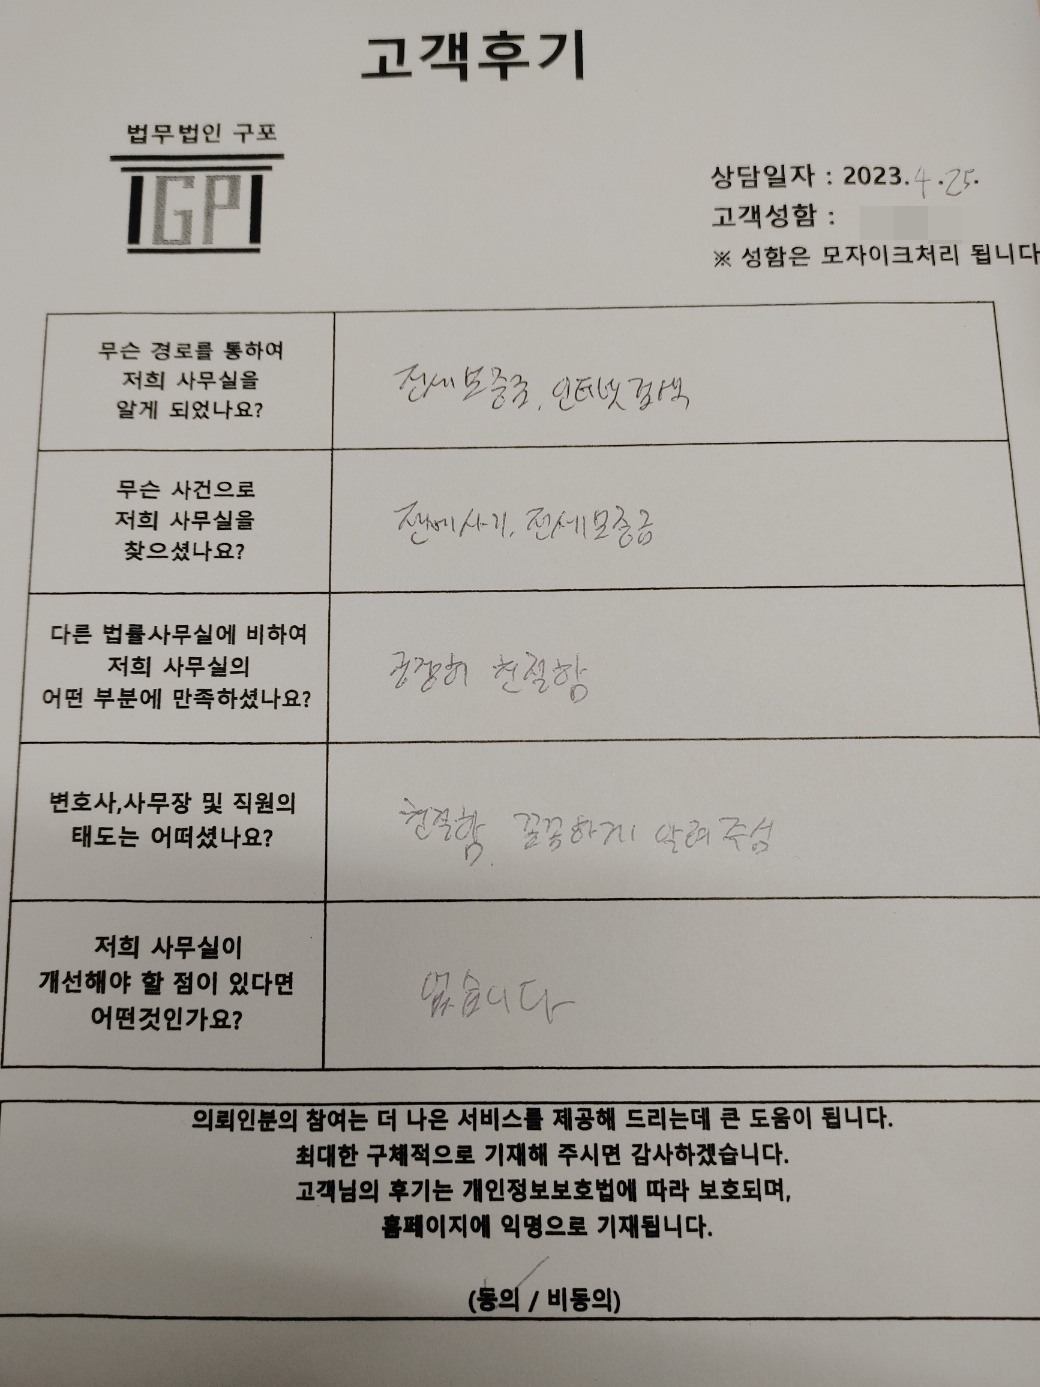 고객후기
법무법인 구포
IGPI
상담일자 : 2023.4.25.
고객성함 :
※ 성함은 모자이크처리 됩니다
무슨 경로를 통하여
저희 사무실을
알게 되었나요?
전세보증금, 인터넷검색
무슨 사건으로
저희 사무실을
찾으셨나요?
전세사기, 전세보증금
다른 법률사무실에 비하여
저희 사무실의
어떤 부분에 만족하셨나요?
굉장히 친절함
변호사,사무장 및 직원의
태도는 어떠셨나요?
친절함, 꼼꼼하게 알려주심
저희 사무실이
개선해야 할 점이 있다면
어떤것인가요?
없습니다
의뢰인분의 참여는 더 나은 서비스를 제공해 드리는데 큰 도움이 됩니다.
최대한 구체적으로 기재해 주시면 감사하겠습니다.
고객님의 후기는 개인정보보호법에 따라 보호되며,
홈페이지에 익명으로 기재됩니다.
(동의 / 비동의)